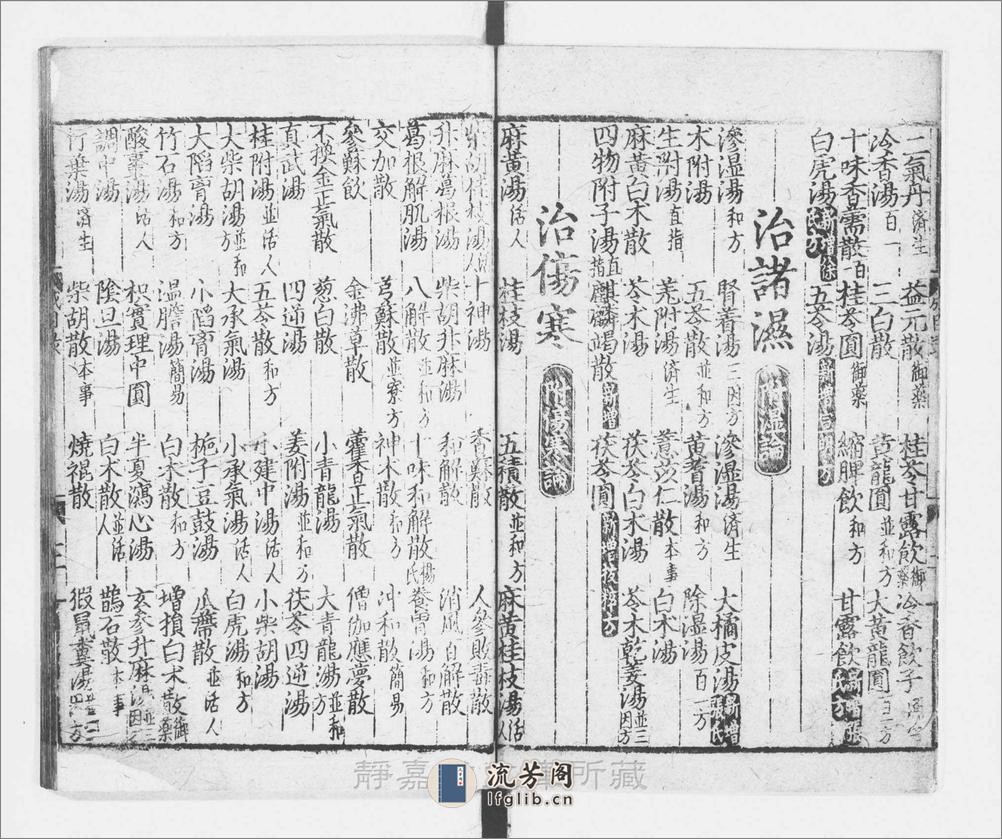 二氣丹濟生 益元散御藥 桂苓甘露飲御藥 冷香飲子
冷香湯百一 三白散 黃龍圓並和方 大黃龍圓
十味香需散百一 桂苓圓御藥 縮脾飲和方 甘露飲
白虎湯 五苓湯
治諸濕 附湿論
滲湿湯和方 腎着湯三因方 滲湿湯済生 大橘皮湯
术附湯 五苓散並和方 黄耆湯和方 除湿湯百一方
生附湯直指 芎附湯済生 薏苡仁散本事 白术湯
麻黃白术散 苓术湯 茯苓白术湯 苓术乾姜湯並三因方
四物附子湯直指 麒麟竭散新增 茯苓圓
治傷寒 附傷寒論
麻黃湯活人 桂枝湯 五積散並和方 麻黄桂枝湯活人
柴胡桂枝湯活人 十神湯 香蘇散 人參敗毒散
升麻葛根湯 柴胡升麻湯 和解散 消風百解散
葛根解肌湯 八解散並和方 十味和解散楊氏 養胃湯和方
交加散 芎蘇散並寮方 神术散並和方 冲和散簡易
參蘇飲 金沸草散 藿香正氣散 僧伽應夢散
不換金正氣散 葱白散 小青龍湯 大青龍湯並和方
真武湯 四逆湯 姜附湯並和方 茯苓四逆湯
桂附湯並活人 五苓散和方 小建中湯 小柴胡湯
大柴胡湯並和方 大承氣湯 小承氣湯活人 白虎湯和方
大陷胷湯 小陷胷湯 梔子豆鼓湯 瓜蔕散並活人
竹石湯和方 温膽湯簡易 白术散和方 增損白术散御藥
酸棗湯活人 枳實理中圓 半夏瀉心湯 玄參升麻湯並三因
調中湯 陰旦湯 白术散並活人 鵲石散本事
竹葉湯済生 柴胡散本事 燒裩散 猳鼠糞湯
靜嘉 所藏
流芳阁
lfglib.cn